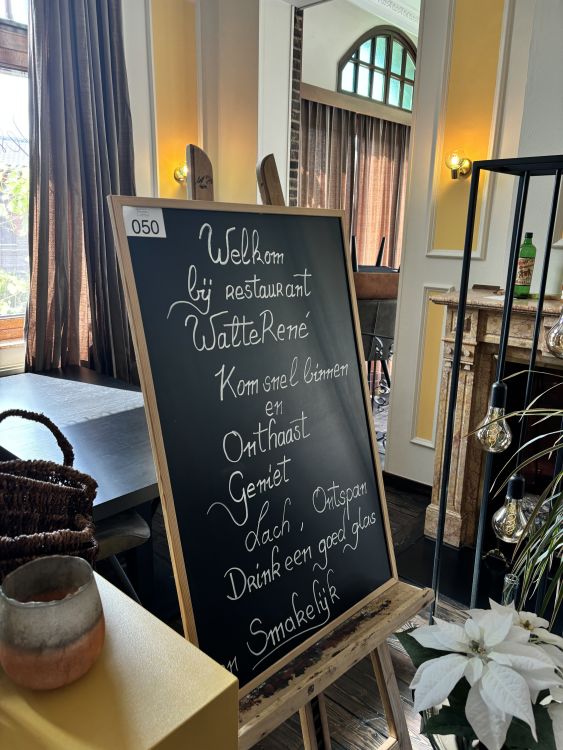 050
Welkom
bij restaurant
WalteRené
Kom snel binnen
en
Onthaast
Geniet
Lach, Ontspan
Drink een goed glas
Smakelijk